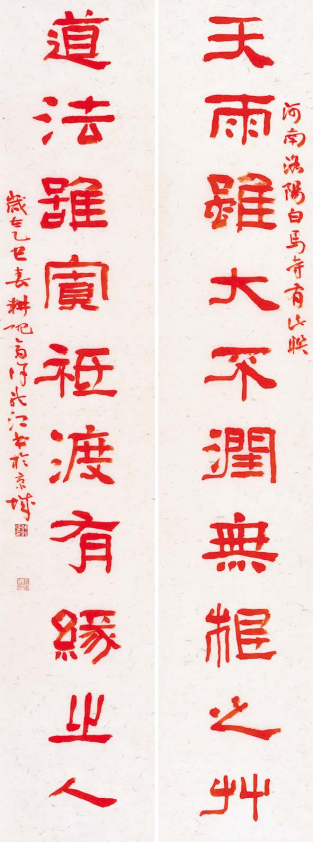 河南洛陽白馬寺有此聯
天雨雖大不潤無根之艸
道法雖寬祗渡有緣之人
歲在乙巳春耕 江書於京城